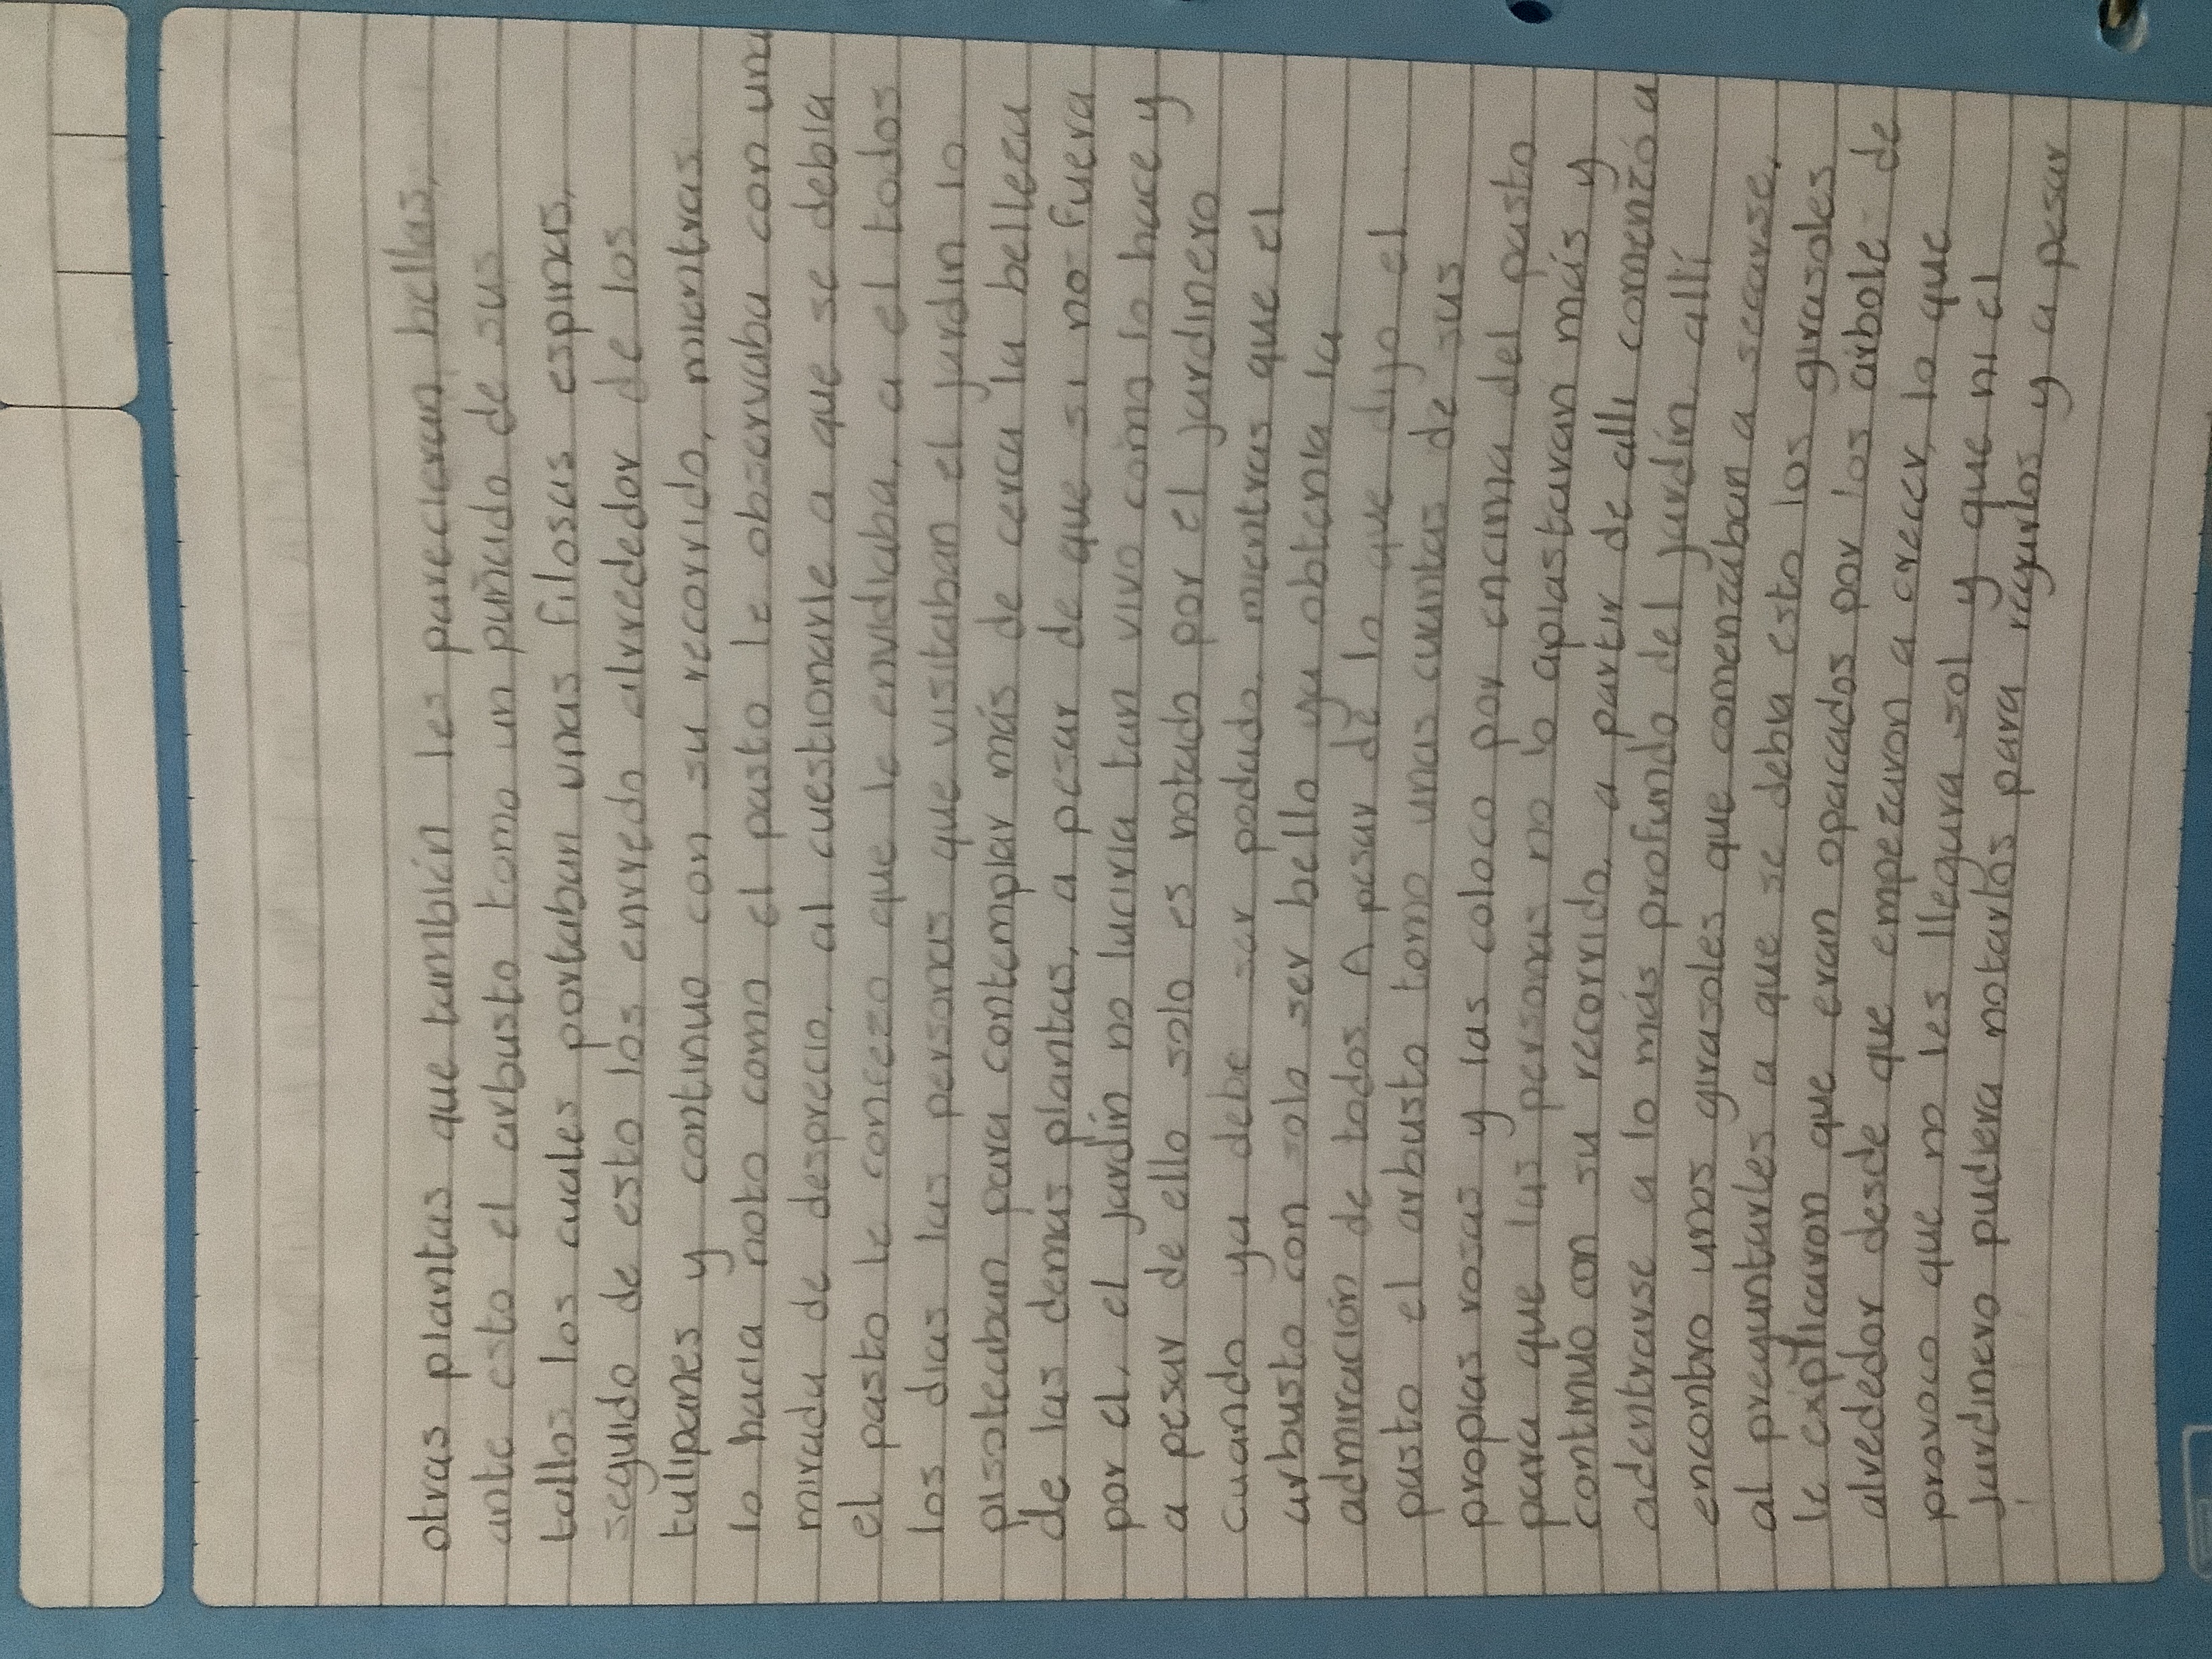 otras plantas que también les parecieran bellas,
ante esto el arbusto tomo un puñado de sus
tallos los cuales portaban unas filosas espinas,
seguido de esto los enredo alrrededor de los
tulipanes y continuo con su recorrido, mientras
lo hacia noto como el pasto le observaba con una
mirada de desprecio, al cuestionarle a que se debia
el pasto le conrezo que le envidiaba, a el todos
los dias las personas que visitaban el jardin lo
pisoteaban para contemplar más de cerca la belleza
de las demas plantas, a pesar de que si no fuera
por el, el jardín no luciria tan vivo como lo hace y
a pesar de ello solo es notado por el jardinero
cuando ya debe ser podado, mientras que el
arbusto con solo ser bello ya obtenia la
admiración de todos. A pesar de lo que dijo el
pasto el arbusto tomo unas cuantas de sus
propias rosas y las coloco por encima del pasto
para que las personas no lo aplastaran más y
continuo con su recorrido, a partir de alli comenzó a
adentrarse a lo más profundo del jardín allí
encontro unos girasoles que comenzaban a secarse,
al preguntarles a que se debia esto los girasoles
le explicaron que eran opacados por los árbole de
alvededor desde que empezaron a crecer, lo que
provoco que no les llegara sol y que ni el
jardinero pudiera notarlos para regarlos y a pesar